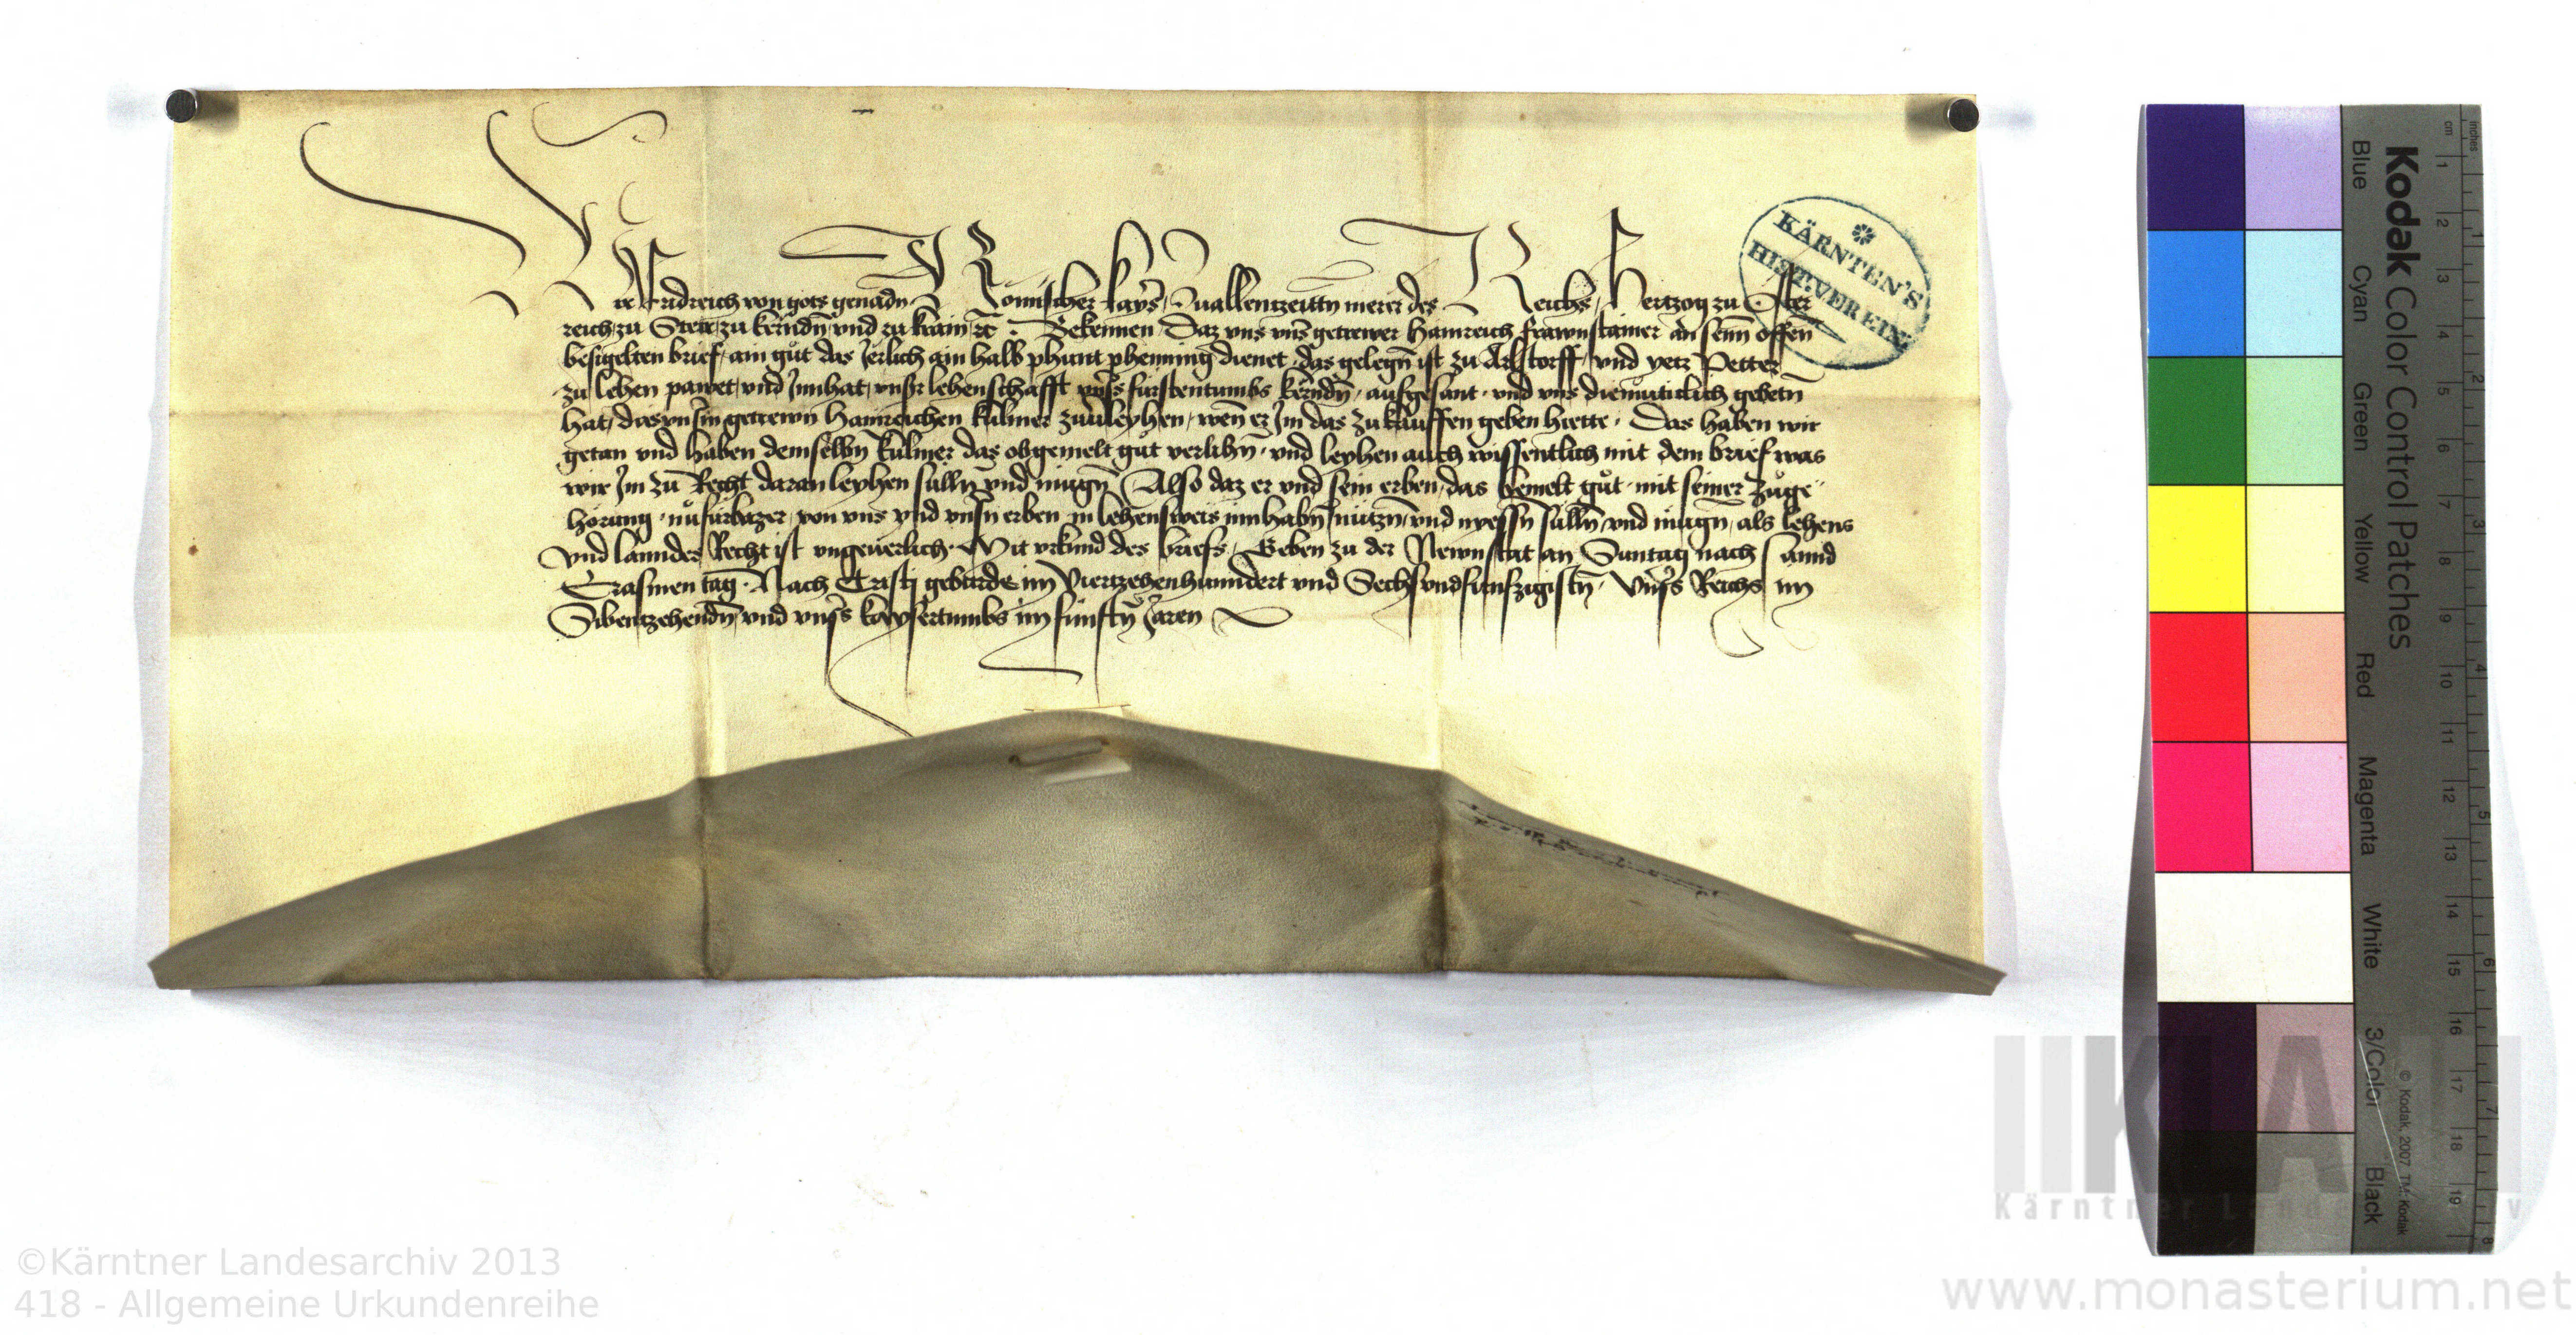 Wir Fridreich von gots genadn Römischer kayser, zuallenntzeittn merer des Reichs, Hertzog zu Öster
reich, zu Steir, zu kernndn, vnd zu krain, etc. Bekennen, Daz vns vnser getrewer Hainreich frawnstainer an seinem offen
besigelten brief, ain gůt das Jerlich ain halb phunt phenning dienet, das gelegn ist zu Arlstorff, vnd yetz Petter
zu lehen pawet, vnd Innhat, vnser lehenschafft vnsers fürstentumbs kerndn, aufgesant, vnd vns diemütticlich gebetn
hat, das vnserm getrewn Hainreichen kulmer zuuerleyhen, wenn er Im das zu kauffen geben hiette. Das haben wir
getan vnd haben demselbn kulmer das obgemelt gůt verlihn, vnd leyhen auch wissentlich mit dem brief was
wir Im zu Recht daran leyhen sulln vnd mugn Also daz er vnd sein erben, das bemelt gůt mit seiner zůge
hörung, nu fürbazer, von vns vnd vnsern erben in lehensweis innhabn, nützn, vnd nyessn sulln vnd mugn, als lehens
vnd lanndes Recht ist vngeuerlich. Mit vrkund des briefs, Geben zu der Newnstat an Suntag nach sannd
Erasmen tag. Nach Cristi geburde im Viertzehenhunndert vnd Sechsvndfunfzigistn, Vnsers Reichs im
Sibentzehendn, vnd vnsers kaysertumbs im fünfftn Jaren
KÄRNTEN'S
HIST. VEREIN
Kodak Color Control Patches
Blue Cyan Green Yellow Red Magenta White 3/Color Black
© Kodak, 2007 TM: Kodak
inches 1 2 3 4 5 6 7 8
cm 1 2 3 4 5 6 7 8 9 10 11 12 13 14 15 16 17 18 19
©Kärntner Landesarchiv 2013
418 - Allgemeine Urkundenreihe
www.monasterium.net